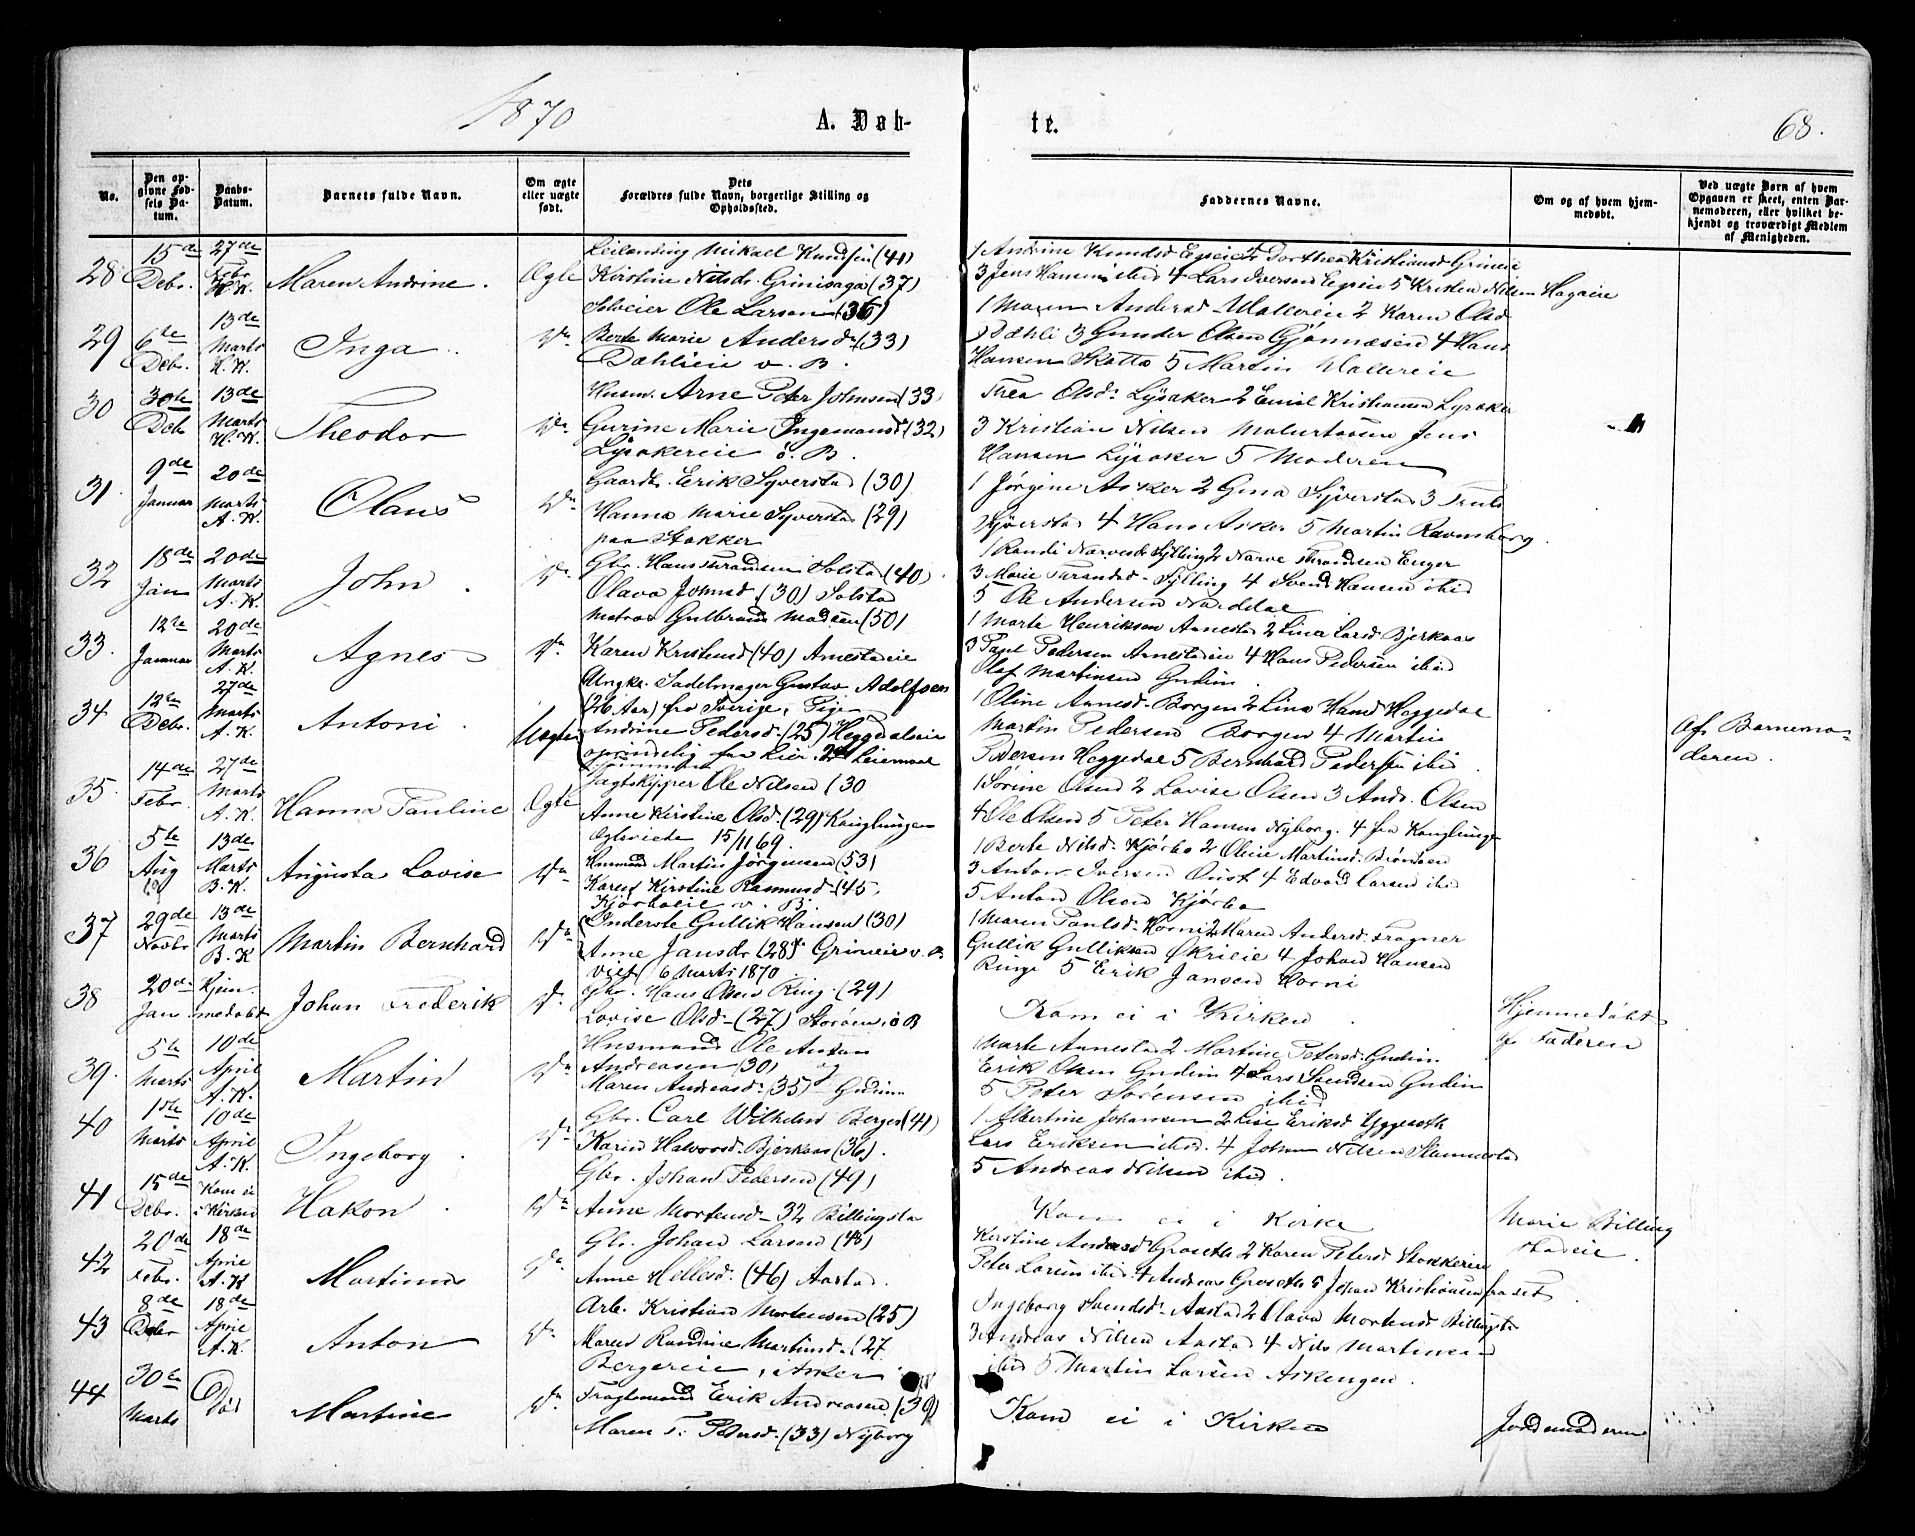 1870
A. Døb-
te.
68.
No.
Den opgivne Fødsels Datum.
Daabs-Datum.
Barnets fulde Navn.
Om ægte eller uægte født.
Dets Forældres fulde Navn, borgerlige Stilling og Opholdssted.
Faddernes Navne.
Om og af hvem hjemmedøbt.
Ved uægte Børn af hvem Opgaven er skeet, enten Barnemoderen, eller hvilket bekjendt og troværdigt Medlem af Menigheden.
28 15de Debr. 27de Febr. Maren Andrine. Ægte
Leilending Mikael Knudsen (41)
Kirstine Nilsdr. Grinisaga (37)
1 Andrine Knudsd Egneie 2 Dorthea Kristiansd Grinie
3 Jens Hansen ibid 4 Lars Iversen Egneie 5 Kristen Nilsen Hagaeie
29 6te Debr. 13de Marts Inga. Do
Selveier Ole Larsen (36)
Berte Marie Andersdr. (33)
Dahlieie v. B.
1 Maren Andersd Vallereie 2 Karen Olsd
Dæhli 3 Gunder Olsen Gjønnæseie 4 Hans
Hansen Skotta 5 Martin Vallereie
30 30te Debr 13de Marts H.K. Theodor Do
Husm. Arne Peter Johnsen (33
Gurine Marie Ingemansd (32)
Lysakereie ø. B.
Thea Olsd. Lysaker 2 Emil Kristiansen Lysaker
3 Kristian Nilsen Jens
Hansen Lysaker 5 Moderen
31. 9de Januar 20de Marts A.K. Olaus Do
Gaardbr. Erik Syverstad (30)
Hanna Marie Syverstad (29)
paa Stokker
1 Jørgine Asker 2 Gina Syverstad 3 Truls
Syverstad 4 Hans Asker 5 Martin Ravnsborg
32 18de Jan 20de Marts A.K. John. Do
Gbr. Hans Thrandsen Solstad (40)
Olava Johnsd. (30) Solstad
1 Randi Narvesd Sylling 2 Narve Thrandsen Enger
3 Marie Thrandsd. Sylling 4 Svend Hansen ibid
5 Ole Andersen Norddal
33. 12te Januar 20de Marts A.K. Agnes Do
Matros Gulbrand Madsen (50)
Karen Kristensd (40) Arnestadeie
1 Marte Henriksen Arnestad 2 Lina Larsd Bjerkaas
3 Paul Pedersen Arnestadeie 4 Hans Pedersen ibid
Olaf Martinsen Gudim
34 12te Debr. 27de Marts A.K. Antoni. Uægte
Ungk. Sadelmager Gustav Adolfsen
(26 Aar) fra Sverige, Pige
Andrine Pedersd. (25) Heggedalseie
oprindelig fra Lier
1 Oline Arnesd. Borgen 2 Lina Hansd Heggedal
Martin Pedersen Borgen 4 Martin
Pedersen Heggedal 5 Bernhard Pedersen ibid
Af Barnemo-
deren.
35. 14de Febr. 27de Marts A.K. Hanna Pauline Ægte
Jagtskipper Ole Nilsen (30
Anne Kirstine Olsd (29) Konglungen
Ægteviede 15/11 69.
1 Sørine Olsen 2 Lovise Olsen 3 Andr. Olsen
4 Ole Olsen 5 Peter Hansen Nyborg. 4 fra Konglungen
36 5te Aug 13de Marts B.K. Augusta Lovise Do
Husmand Martin Jørgensen (53)
Karen Kirstine Rasmusd. (45.
Kjørboeie v. B.
1 Berte Nilsd. Kjørbo 2 Oline Martinsd. Brønøen
3 Anton Iversen 4 Edvard Larsen ibid
5 Anton Olsen Kjørbo
37 29de Novbr 13de Marts B.K Martin Bernhard Do
Inderste Gullik Hansen (30)
Anne Jansdr (28) Grinieie v. B
viet 6 Marts 1870.
1 Maren Paulsd. Horni 2 Karen Andersd. Frogner
Gullik Gulliksen Økrieie 4 Johan Hansen
Ringi 5 Erik Jansen Horni
38 20de Jan Hjemmedøbt Johan Frederik Do
Gbr. Hans Olsen Ring. (29)
Lovise Olsd. (27) Storøen i ø B
Kom ei i Kirken.
Hjemmedøbt
af Faderen
39. 5te Marts 10de April A.K. Martin Do
Husmand Ole Anton
Andreasen (30) og
Maren Andreasd. (35) Gudim
Marte Arnestad 2 Martine Petersd. Gudim.
Erik Olsen Gudim 4 Lars Svendsen Gudim
5 Peter Sørensen ibid
40 1ste Marts 10de April A.K. Ingeborg. Do
Gbr. Carl Wilhelm Berger (41)
Karen Halvorsd. Bjerkaas (36).
1 Albertine Johansen 2 Lise Eriksd Yggeseth
Lars Eriksen ibid. 4 Johan Nilsen Slemmestad
5 Andreas Nilsen ibid.
41 15de Debr. Kom ei i Kirken Hakon. Do
Gbr. Johan Pedersen (49)
Anne Mortensd. 32 Billingstad
Kom ei i Kirke
Marie Billing
stadeie.
42 20de Febr. 18de April A.K Martinus Do
Gbr. Johan Larsen (43)
Anne Hellesd. (46) Aastad.
Kirstine Andersd Groseth 2 Karen Petersd Stokkerie
Peter Larsen ibid. 4 Andreas Groseth 5 Johan Kristiansen
43 8de Debr 18de April A.K. Anton Do
Arb. Kristian Mortensen (25)
Maren Randine Martinsd. (27
Bergereie i Asker
Ingeborg Svendsd. Aastad 2 Olava Mortensd Billingstad
3 Andreas Nilsen Aastad 4 Nils Martinsen
ibid 5 Martin Larsen Askengen.
44 30te Marts Død Martine Do
Fragtemand Erik Andreasen (39)
Maren T. Petersd. (33) Nyborg
Kom ei i Kirken
Jordemoderen